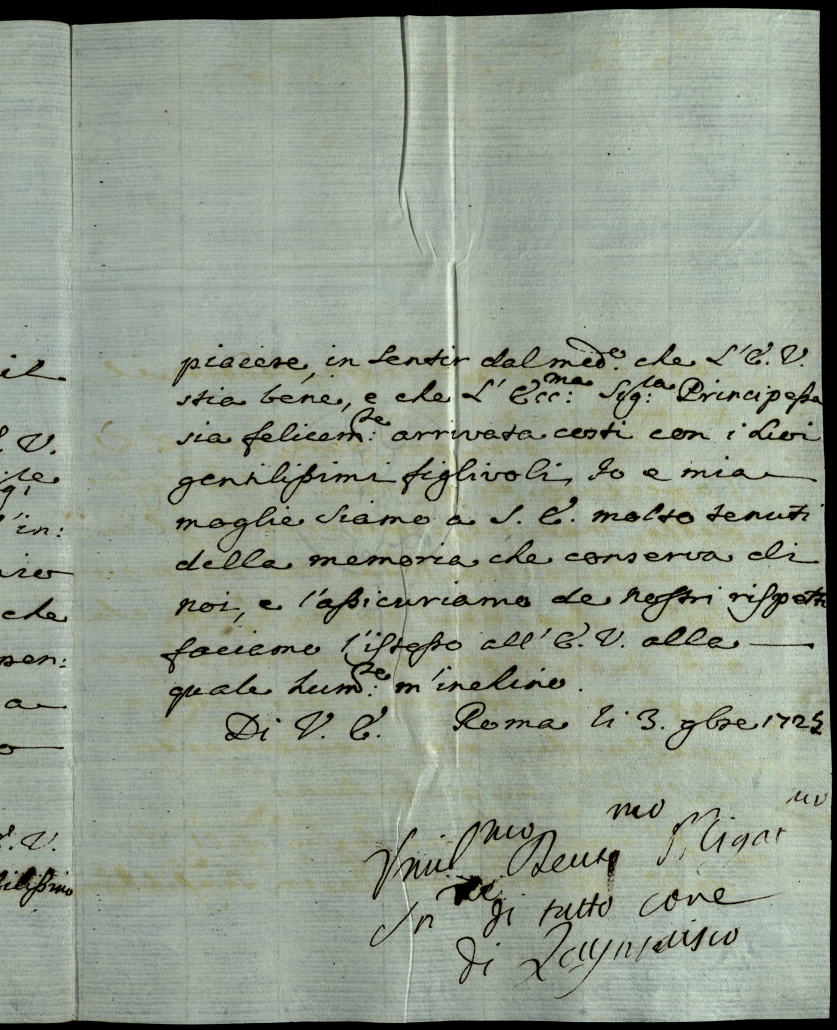 piacere, in sentir dal med:º che L'E. V.
stia bene, e che L'Ecc:ma Sig:ra Principessa
sia felicem:te arrivata costì con i suoi
gentilissimi figlivoli, Io e mia
moglie siamo a S. E. molto tenuti
della memoria che conserva di
noi, e l'assicuriamo de nostri rispetti
faciamo l'istesso all'E. V. alla
quale hum:te m'inclino.
Di V. E. Roma li 3. 9bre 1725
Umil mo Deuo mo Obligat mo
di tutto core
di
il
V.
in:
che
pen:
a
V.